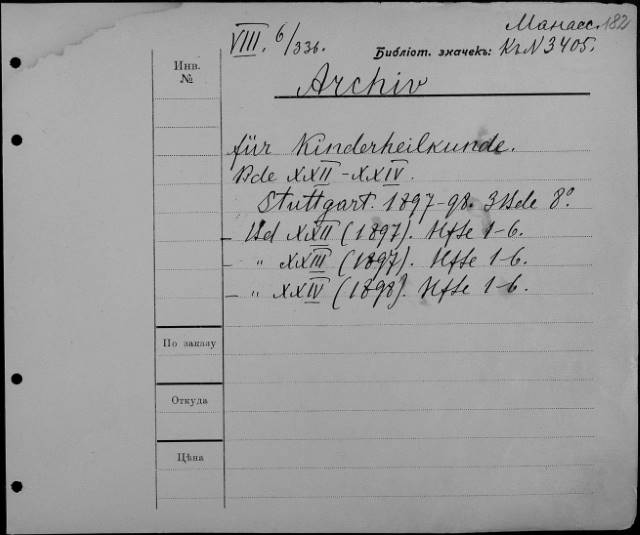 Манасс. 182
VIII. 6/336.
Библіот. значекъ: Кг N 3405.
Инв.
№
Archiv
für Kinderheilkunde.
Bde XXII - XXIV.
Stuttgart. 1897-98. 3 Bde 8°.
– Bd XXII (1897). Hfte 1-6.
– " XXIII (1897). Hfte 1-6.
– " XXIV (1898). Hfte 1-6.
По заказу
Откуда
Цѣна